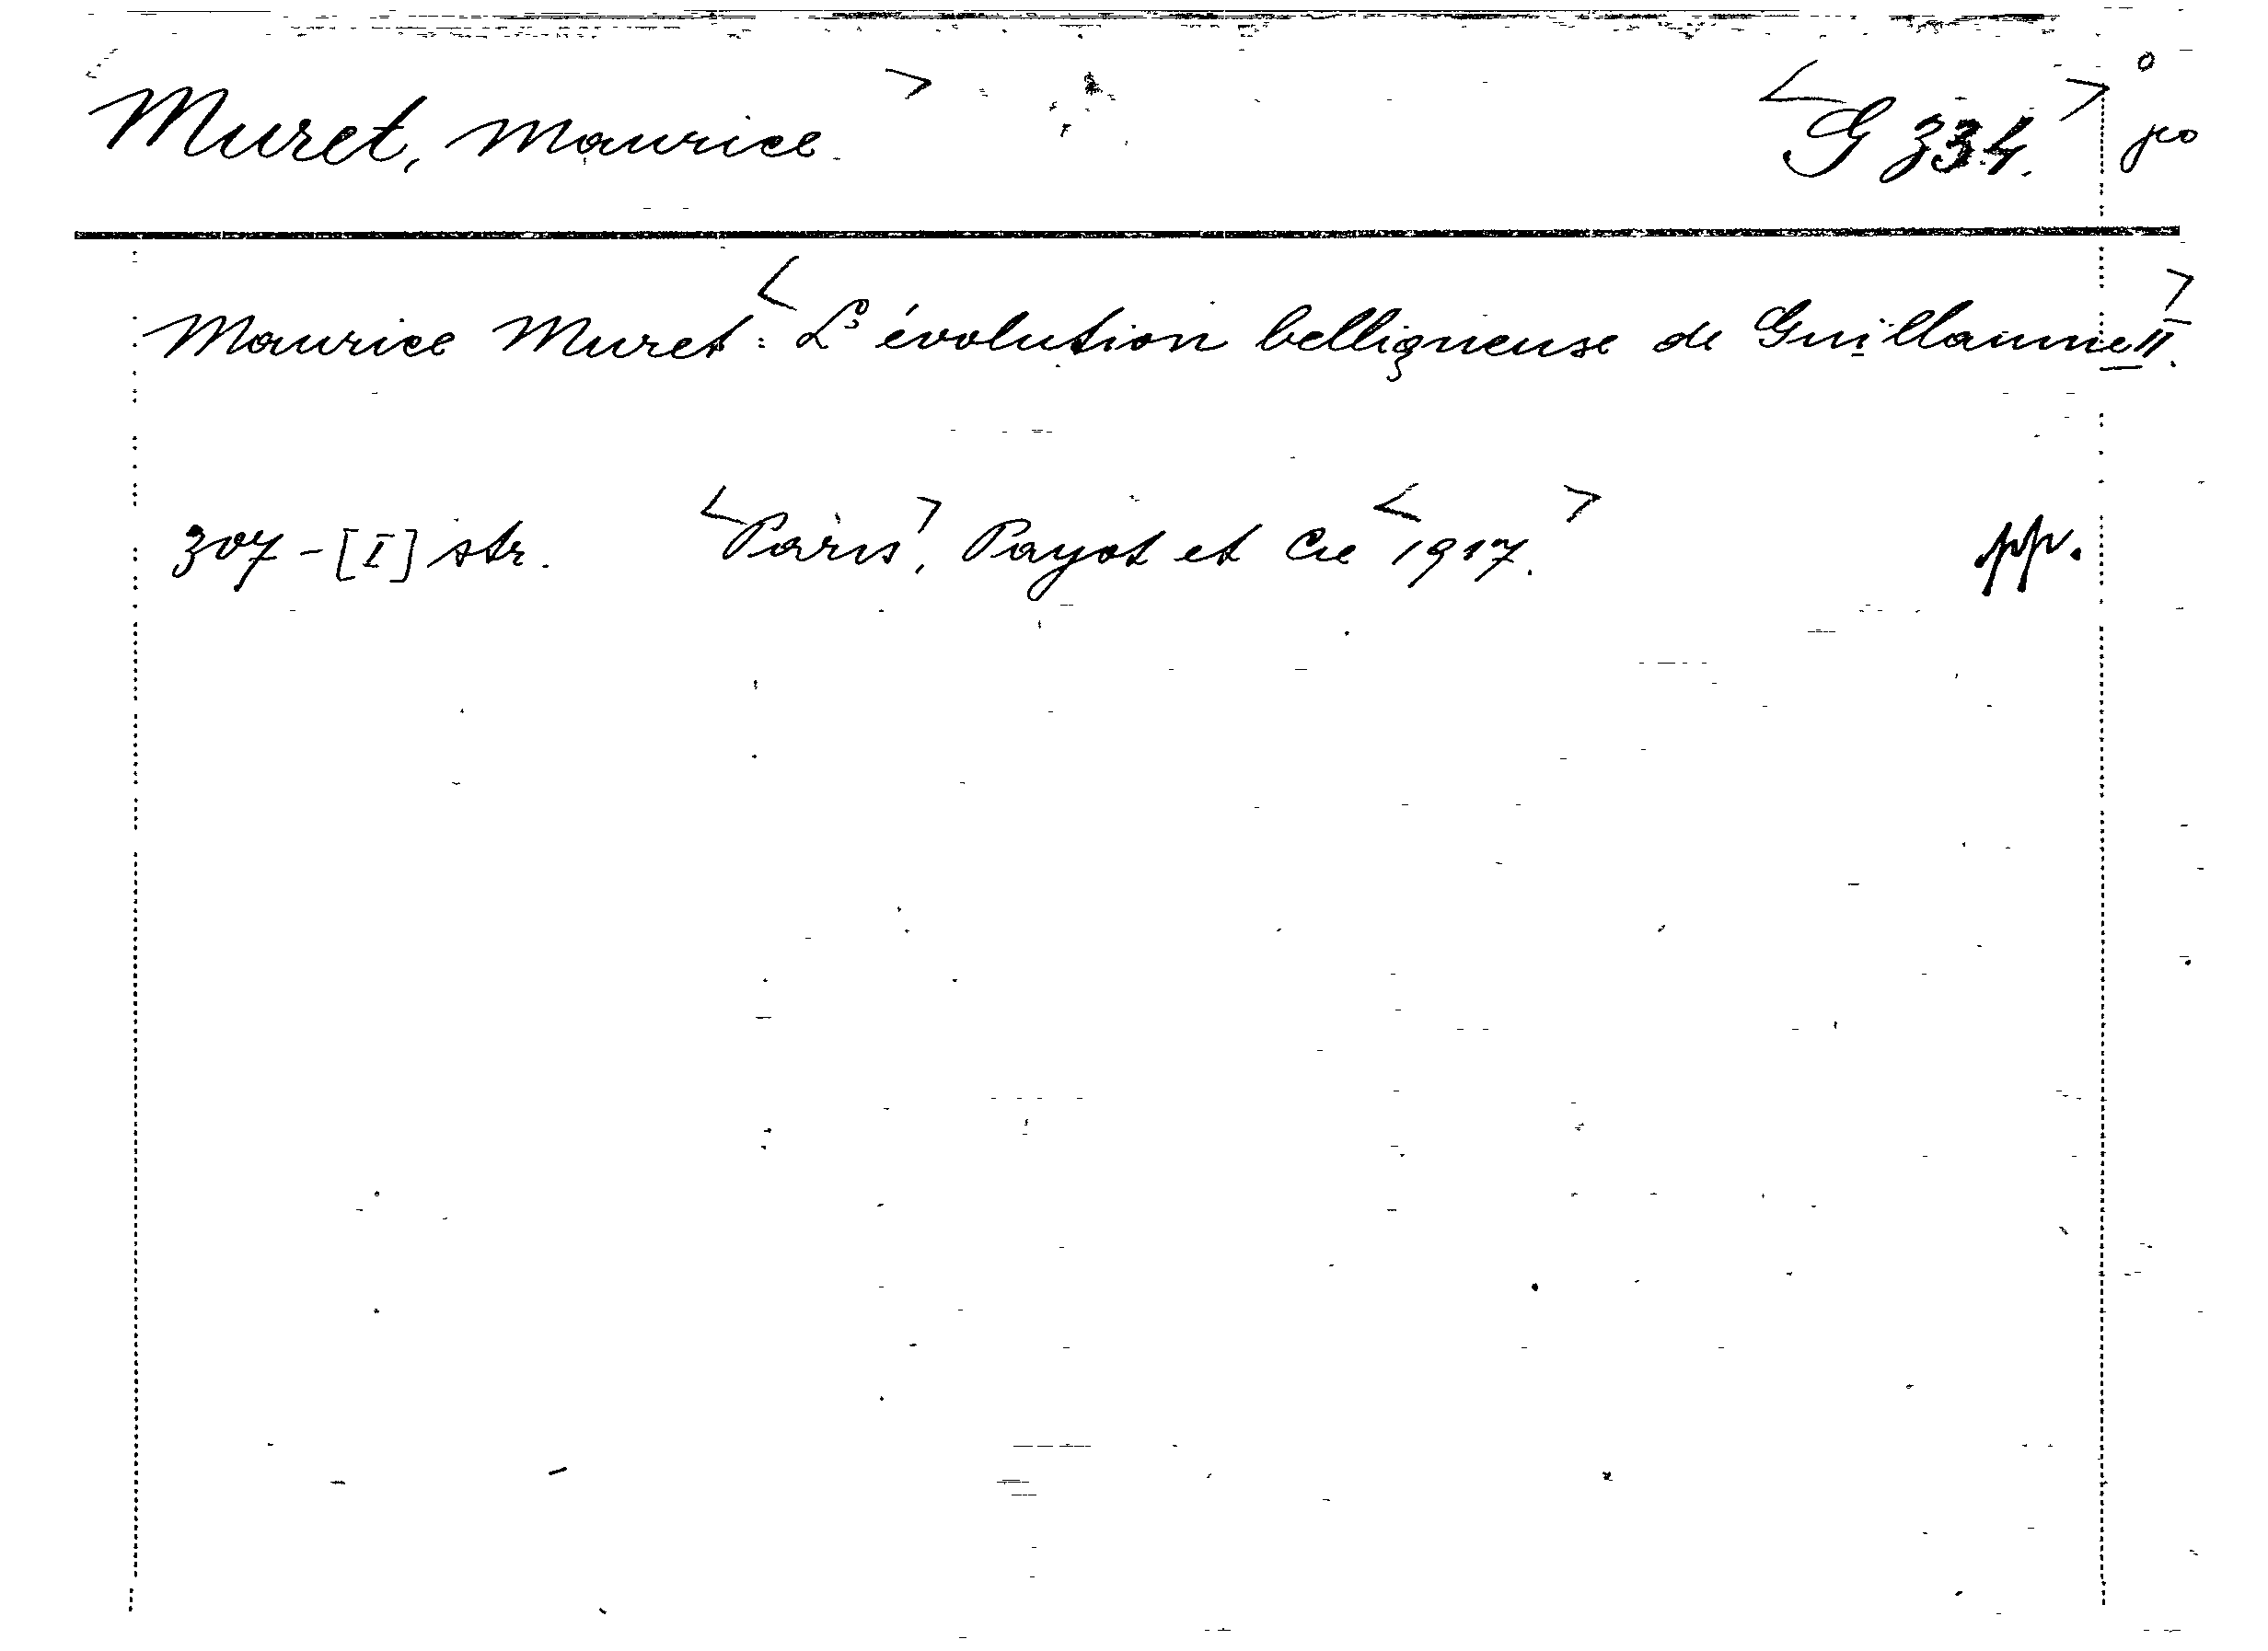 Muret, Maurice. G 334.
Maurice Muret: L' évolution belliqueuse de Guillaume II.
307 - [I] str. Paris, Payot et Cie 1917. pp.